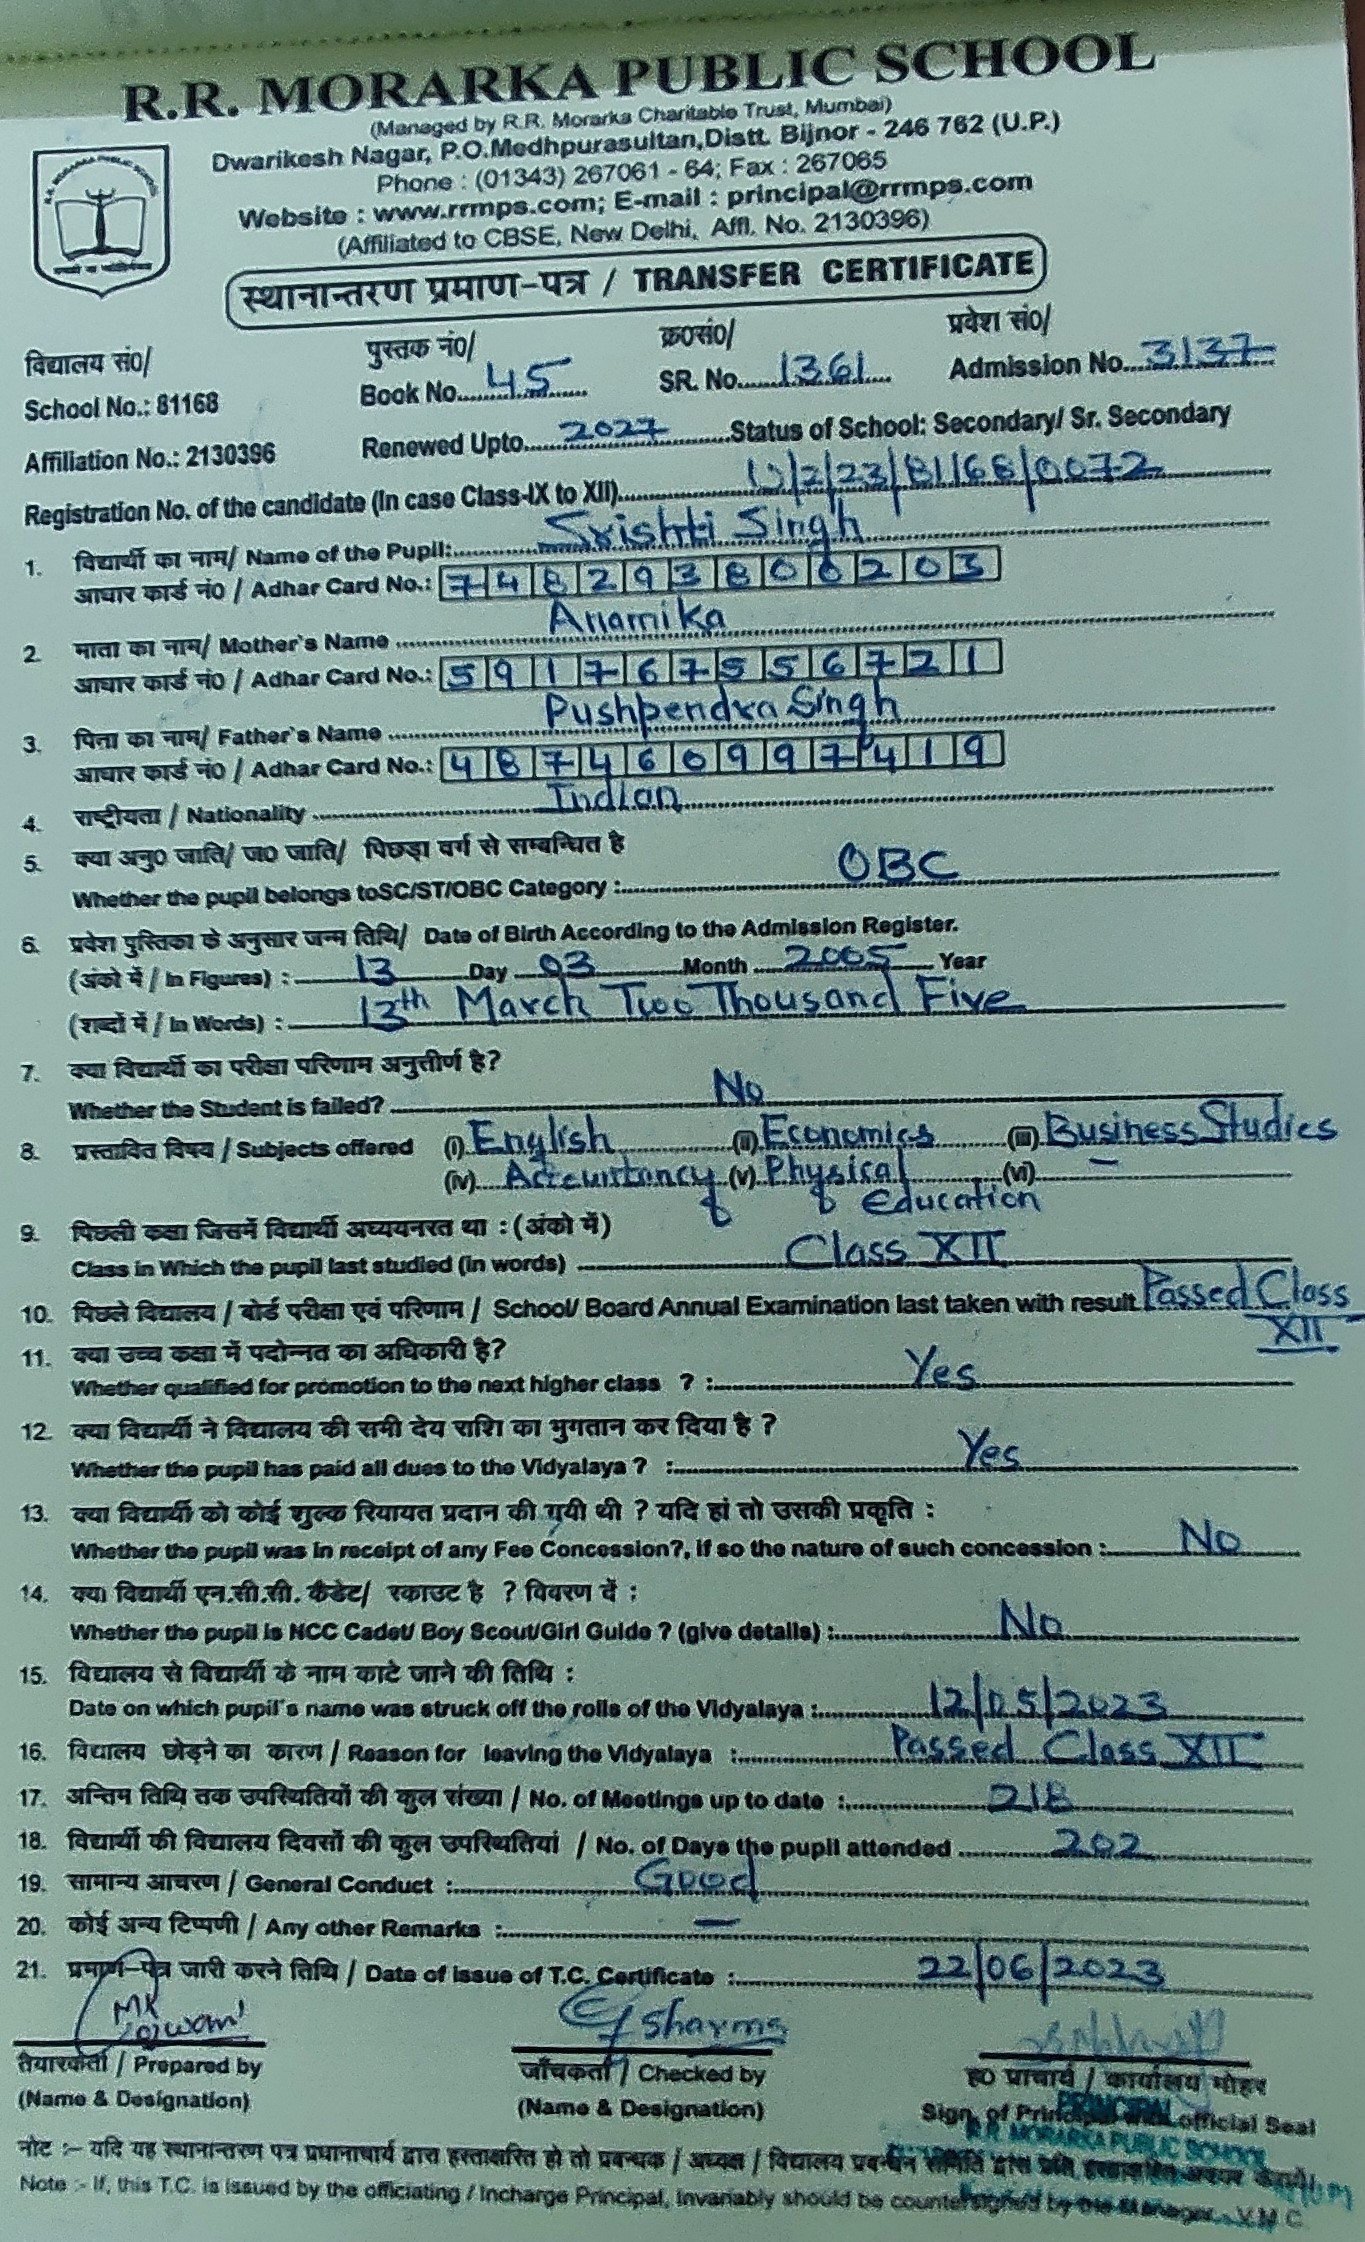 R.R. MORARKA PUBLIC SCHOOL
(Managed by R.R. Morarka Charitable Trust, Mumbai)
Dwarikesh Nagar, P.O.Medhpurasultan,Distt. Bijnor - 246 762 (U.P.)
Phone : (01343) 267061 - 64; Fax : 267065
Website : www.rrmps.com; E-mail : principal@rrmps.com
(Affiliated to CBSE, New Delhi, Affl. No. 2130396)
स्थानान्तरण प्रमाण-पत्र / TRANSFER CERTIFICATE
विद्यालय सं०/ पुस्तक नं०/ क्र०सं०/ प्रवेश सं०/
School No.: 81168 Book No. 45 SR. No. 1361 Admission No. 3137
Affiliation No.: 2130396 Renewed Upto 2027 Status of School: Secondary/ Sr. Secondary
Registration No. of the candidate (In case Class-IX to XII)
1. विद्यार्थी का नाम/ Name of the Pupil: Srishti Singh
आधार कार्ड नं० / Adhar Card No.: 748293800203
2. माता का नाम/ Mother's Name Anamika
आधार कार्ड नं० / Adhar Card No.: 591767556721
3. पिता का नाम/ Father's Name Pushpendra Singh
आधार कार्ड नं० / Adhar Card No.: 487460997419
4. राष्ट्रीयता / Nationality Indian
5. क्या अनु० जाति/ ज० जाति/ पिछड़ा वर्ग से सम्बन्धित है
Whether the pupil belongs toSC/ST/OBC Category : OBC
6. प्रवेश पुस्तिका के अनुसार जन्म तिथि/ Date of Birth According to the Admission Register.
(अंको में / In Figures) : 13 Day 03 Month 2005 Year
(शब्दों में / In Words) : 13th March Two Thousand Five
7. क्या विद्यार्थी का परीक्षा परिणाम अनुत्तीर्ण है?
Whether the Student is failed? No
8. प्रस्तावित विषय / Subjects offered (i) English (ii) Economics (iii) Business Studies
(iv) Accountancy (v) Physical (vi) –
Education
9. पिछली कक्षा जिसमें विद्यार्थी अध्ययनरत था : (अंको में)
Class in Which the pupil last studied (in words) Class XII
10. पिछले विद्यालय / बोर्ड परीक्षा एवं परिणाम / School/ Board Annual Examination last taken with result Passed Class
XII
11. क्या उच्च कक्षा में पदोन्नत का अधिकारी है?
Whether qualified for promotion to the next higher class ? : Yes
12. क्या विद्यार्थी ने विद्यालय की सभी देय राशि का भुगतान कर दिया है ?
Whether the pupil has paid all dues to the Vidyalaya ? : Yes
13. क्या विद्यार्थी को कोई शुल्क रियायत प्रदान की गयी थी ? यदि हां तो उसकी प्रकृति :
Whether the pupil was in receipt of any Fee Concession?, if so the nature of such concession : No
14. क्या विद्यार्थी एन.सी.सी. कैडेट/ स्काउट है ? विवरण दें :
Whether the pupil is NCC Cadet/ Boy Scout/Girl Guide ? (give details) : No
15. विद्यालय से विद्यार्थी के नाम काटे जाने की तिथि :
Date on which pupil's name was struck off the rolls of the Vidyalaya : 12/05/2023
16. विद्यालय छोड़ने का कारण / Reason for leaving the Vidyalaya : Passed Class XII
17. अन्तिम तिथि तक उपस्थितियों की कुल संख्या / No. of Meetings up to date : 218
18. विद्यार्थी की विद्यालय दिवसों की कुल उपस्थितियां / No. of Days the pupil attended 202
19. सामान्य आचरण / General Conduct : Good
20. कोई अन्य टिप्पणी / Any other Remarks : –
21. प्रमाण-पत्र जारी करने तिथि / Date of issue of T.C. Certificate : 22/06/2023
Sharma
तैयारकर्ता / Prepared by जाँचकर्ता / Checked by ह० प्राचार्य / कार्यालय मोहर
(Name & Designation) (Name & Designation) Sign. of Principal with official Seal
PRINCIPAL
R.R. MORARKA PUBLIC SCHOOL
नोट :- यदि यह स्थानान्तरण पत्र प्रधानाचार्य द्वारा हस्ताक्षरित हो तो प्रबन्धक / अध्यक्ष / विद्यालय प्रबन्धन समिति द्वारा प्रति हस्ताक्षरित अवश्य
Note :- If, this T.C. is issued by the officiating / Incharge Principal, invariably should be countersigned by the Manager, V.M.C.